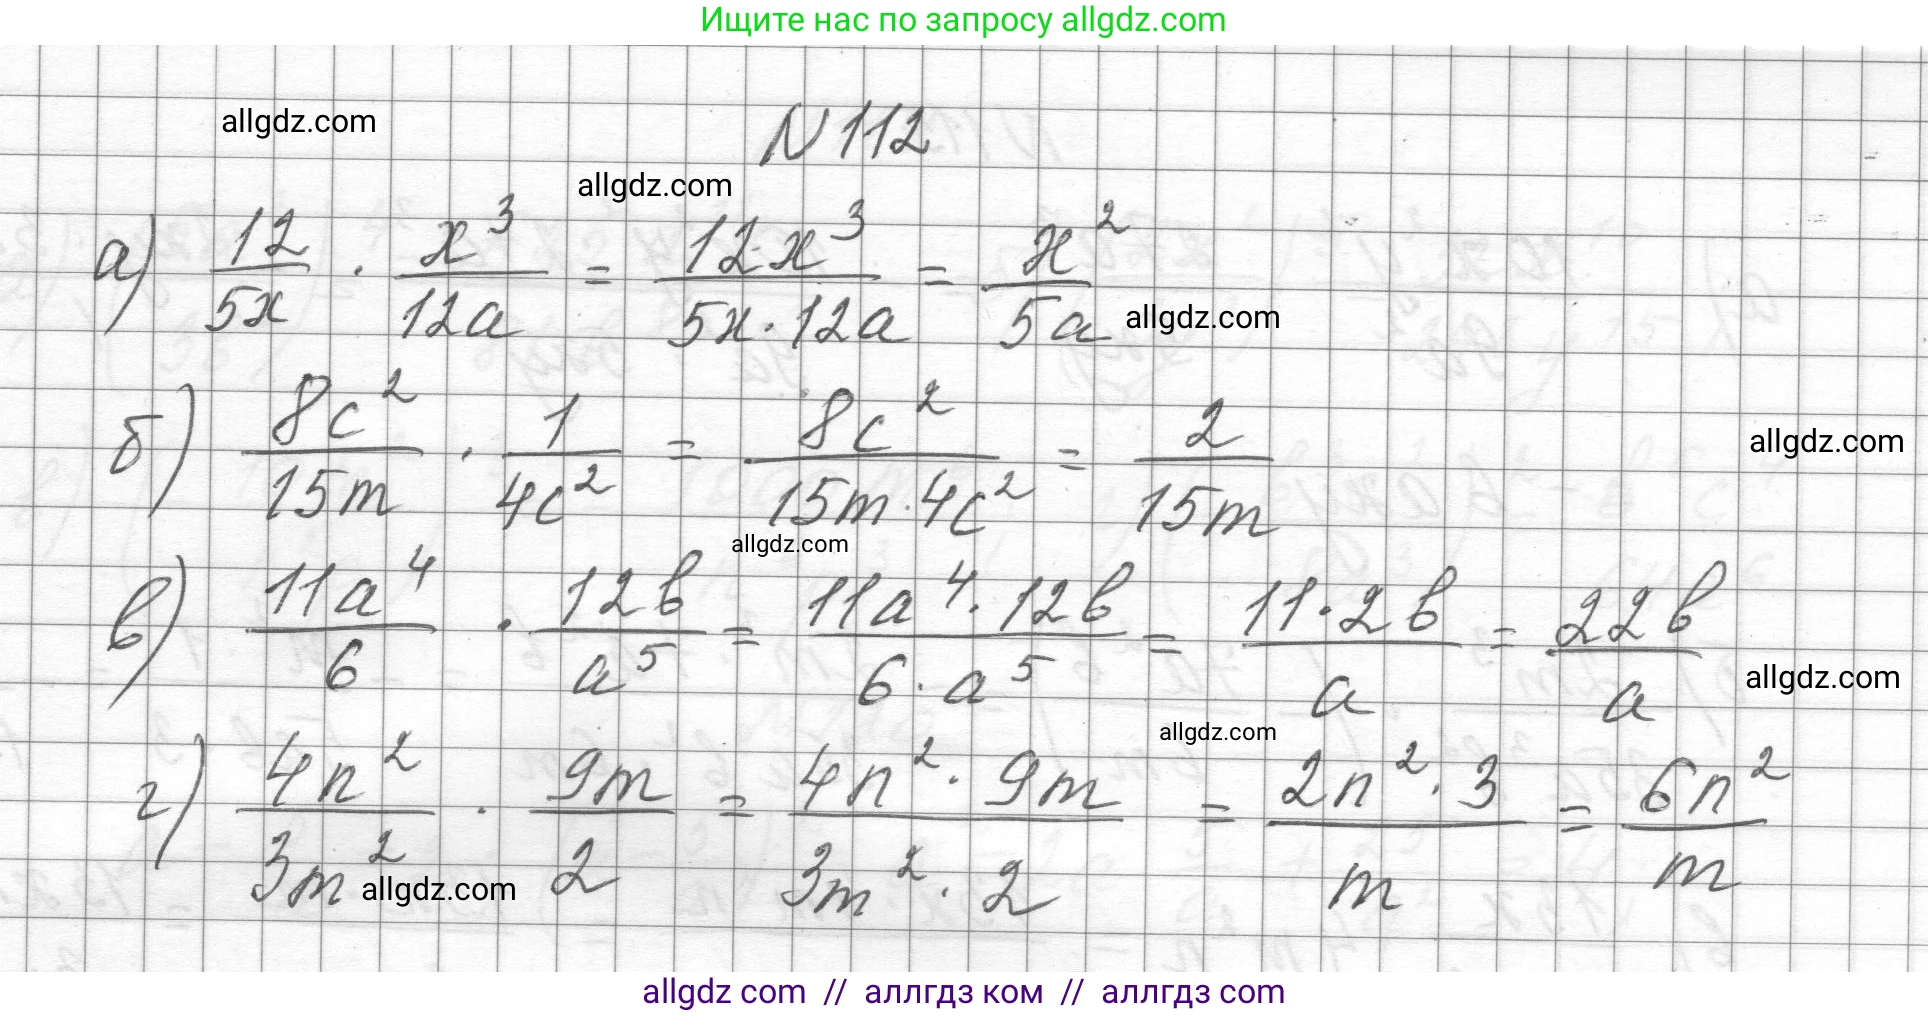 Ищите нас по запросу allgdz.com
allgdz.com
N 112
allgdz.com
а) \frac{12}{5x} · \frac{x^3}{12a} = \frac{12·x^3}{5x·12a} = \frac{x^2}{5a}
allgdz.com
б) \frac{8c^2}{15m} · \frac{1}{4c^2} = \frac{8c^2}{15m·4c^2} = \frac{2}{15m}
allgdz.com
allgdz.com
в) \frac{11a^4}{6} · \frac{12b}{a^5} = \frac{11a^4·12b}{6·a^5} = \frac{11·2b}{a} = \frac{22b}{a}
allgdz.com
allgdz.com
г) \frac{4n^2}{3m^2} · \frac{9m}{2} = \frac{4n^2·9m}{3m^2·2} = \frac{2n^2·3}{m} = \frac{6n^2}{m}
allgdz.com
allgdz com // аллгдз ком // аллгдз com